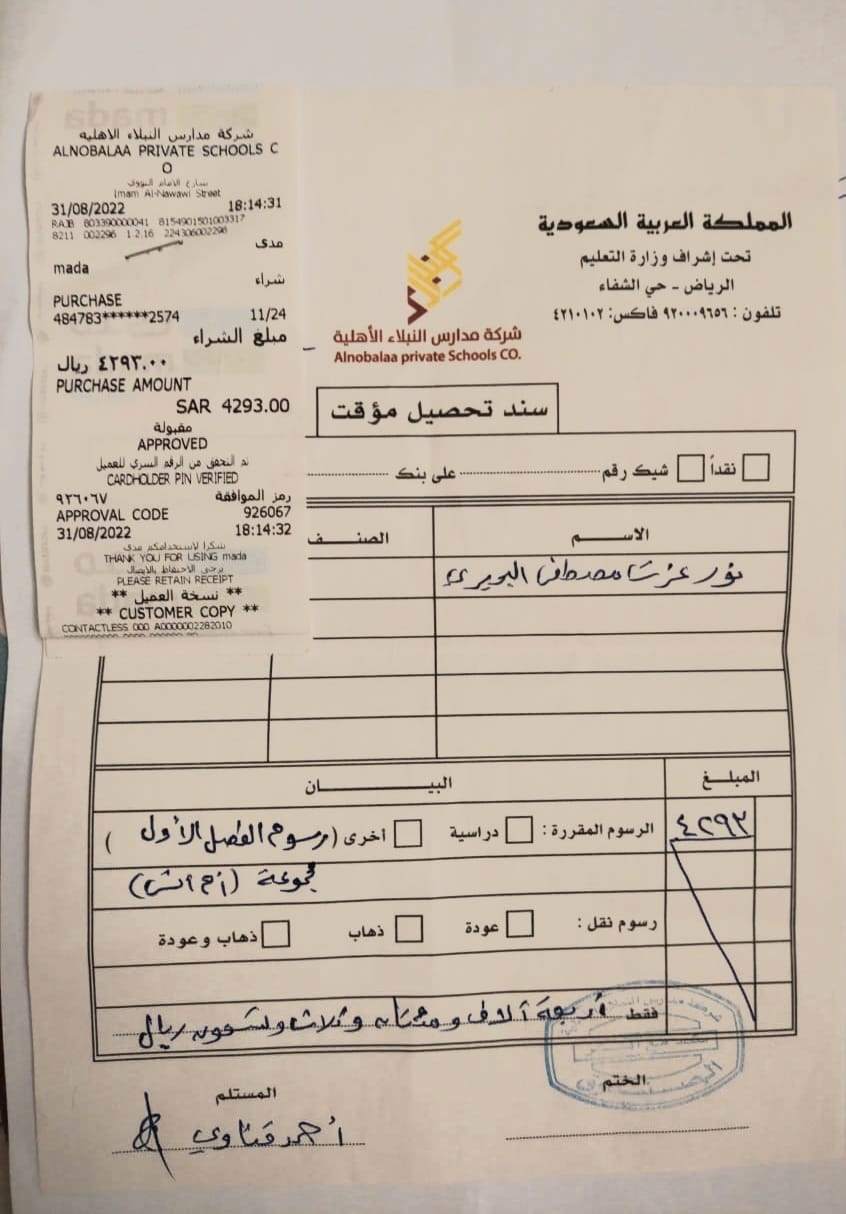 شركة مدارس النبلاء الاهلية
ALNOBALAA PRIVATE SCHOOLS C
O
شارع الامام النووي
Imam Al-Nawawi Street
31/08/2022 18:14:31
RAJB 803390000041 8154901501003317
8211 002296 1.2.16 224306002296
مدى
mada
شراء
PURCHASE
484783******2574 11/24
مبلغ الشراء
٤٢٩٣.٠٠ ريال
PURCHASE AMOUNT
SAR 4293.00
مقبولة
APPROVED
تم التحقق من الرقم السري للعميل
CARDHOLDER PIN VERIFIED
رمز الموافقة ٩٢٦٠٦٧
APPROVAL CODE 926067
31/08/2022 18:14:32
شكرا لاستخدامكم مدى
THANK YOU FOR USING mada
يرجى الاحتفاظ بالايصال
PLEASE RETAIN RECEIPT
** نسخة العميل **
** CUSTOMER COPY **
CONTACTLESS 000 A0000002282010
المملكة العربية السعودية
تحت إشراف وزارة التعليم
الرياض - حي الشفاء
تلفون : ٩٢٠٠٠٩٦٥٦ فاكس: ٤٢١٠١٠٢
شركة مدارس النبلاء الأهلية
Alnobalaa private Schools CO.
سند تحصيل مؤقت
نقداً شيك رقم على بنك
الاسم الصنف
نور عزت مصطفى البحيري
المبلغ البيان
٤٢٩٣ الرسوم المقررة : دراسية أخرى (رسوم الفصل الأول)
مجموعة
رسوم نقل : عودة ذهاب ذهاب وعودة
فقط أربعة آلاف ومئتان وثلاث وتسعون ريال
الختم
المستلم
أحمد قناوي